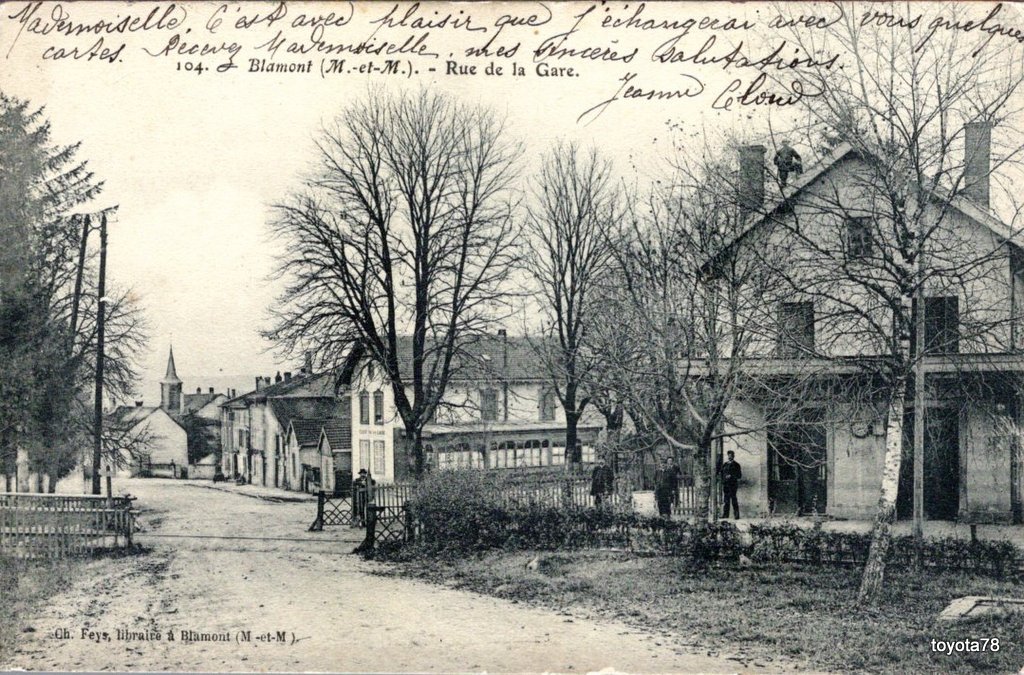 Mademoiselle. C'est avec plaisir que j'échangerai avec vous quelques
cartes. Recevez Mademoiselle. mes sincères salutations.
104. - Blamont (M.-et-M.). - Rue de la Gare.
Jeanne
Ch. Feys, libraire à Blamont (M-et-M).
toyota78